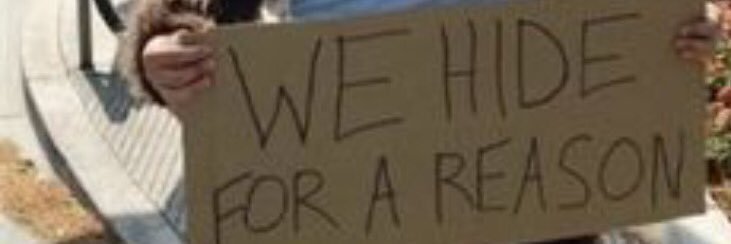 WE HIDE
FOR A REASON